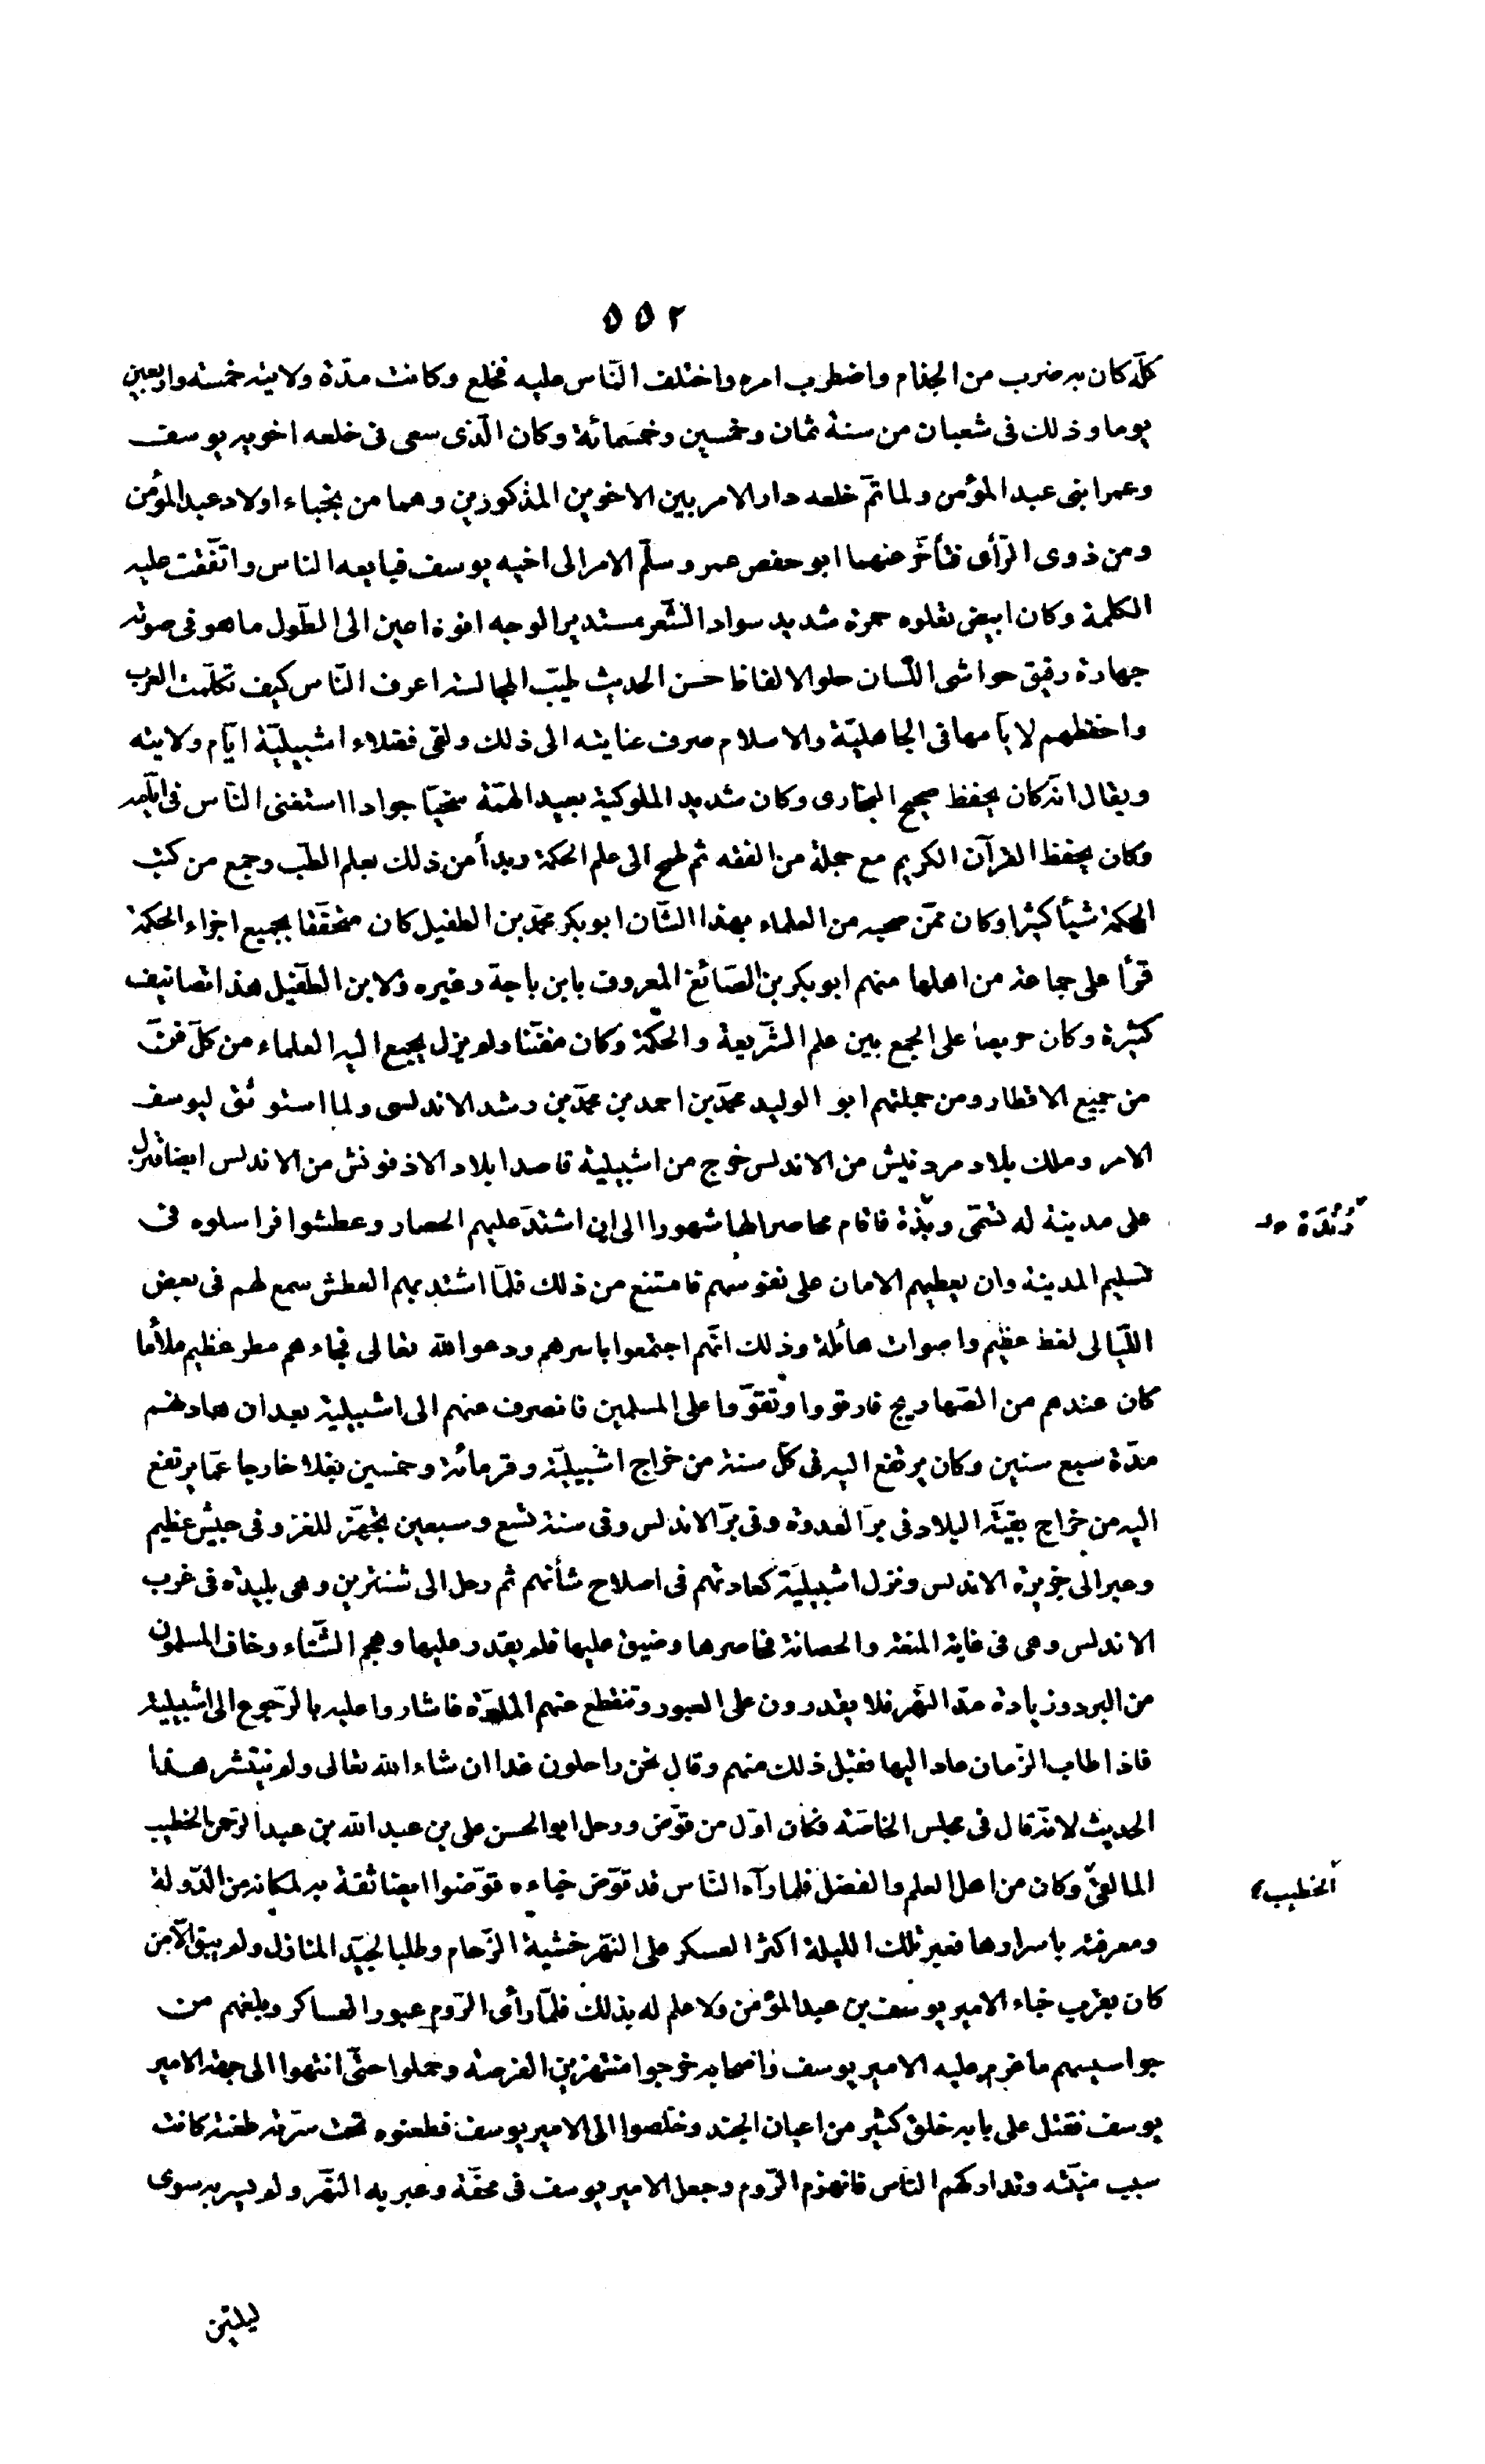 ٥٥٢
كلّه كان به ضرب من الجذام واضطرب امره واختلف النّاس عليه فخلع وكانت مدّة ولايته خمسة واربعين
يوما وذلك فى شعبان من سنة ثمان وخمسين وخمسمائة وكان الّذى سعى فى خلعه اخويه يوسف
وعمر ابنى عبد المؤمن ولما تمّ خلعه دار الامر بين الاخوين المذكورين وهما من نجباء اولاد عبد المؤمن
ومن ذوى الرّأى فتأخّر عنهما ابو حفص عمر وسلّم الامر الى اخيه يوسف فبايعه الناس واتّفقت عليه
الكلمة وكان ابيض تعلوه حمرة شديد سواد الشّعر مستدير الوجه افوه اعين الى الطّول ما هو فى صوته
جهارة رقيق حواشى اللّسان حلو الالفاظ حسن الحديث طيّب المجالسة اعرف النّاس كيف تكلّمت العرب
واحفظهم لايّامها فى الجاهليّة والاسلام صرف عنايته الى ذلك ولقى فضلاء اشبيليّة ايّام ولايته
ويقال انّه كان يحفظ صحيح البخارى وكان شديد الملوكية بعيد الهمّة سخيّا جوادا استغنى النّاس فى ايّامه
وكان يحفظ القرآن الكريم مع جملة من الفقه ثم طمح الى علم الحكمة وبدأ من ذلك بعلم الطّب وجمع من كتب
الحكمة شيأ كثيرا وكان ممّن صحبه من العلماء بهذا الشّان ابو بكر محمّد بن الطفيل كان متحقّقا بجميع اجزاء الحكمة
قرأ على جماعة من اهلها منهم ابو بكر بن الصّائغ المعروف بابن باجة وغيره ولابن الطّفيل هذا تصانيف
كثيرة وكان حريصا على الجمع بين علم الشّريعة والحكمة وكان مفنّنا ولم يزل يجمع اليه العلماء من كلّ فنّ
من جميع الاقطار ومن جملتهم ابو الوليد محمّد بن احمد بن محمّد بن رشد الاندلسى ولما استوثق ليوسف
الامر وملك بلاد مردنيش من الاندلس خرج من اشبيلية قاصدا بلاد الاذفونش من الاندلس ايضا فنزل
على مدينة له تسمّى وبذة فاقام محاصرا لها شهورا الى ان اشتدّ عليهم الحصار وعطشوا فراسلوه فى
رُنْدَة صح
تسليم المدينة وان يعطيهم الامان على نفوسهم فامتنع من ذلك فلمّا اشتد بهم العطش سمع لهم فى بعض
اللّيالى لغط عظيم واصوات هائلة وذلك انّهم اجتمعوا باسرهم ودعوا الله تعالى فجاءهم مطر عظيم ملأ ما
كان عندهم من الصّهاريج فارتووا وتقوّوا على المسلمين فانصرف عنهم الى اشبيلية بعد ان هادنهم
مدّة سبع سنين وكان يرتفع اليه فى كلّ سنة من خراج اشبيليّة وقر مائة وخمسين بغلا خارجا عمّا يرتفع
اليه من خراج بقيّة البلاد فى برّ العدوة وفى برّ الاندلس وفى سنة تسع وسبعين تجهّز للغزو فى جيش عظيم
وعبر الى جزيرة الاندلس ونزل اشبيليّة كعادتهم فى اصلاح شأنهم ثم رحل الى شنترين وهى بليدة فى غرب
الاندلس وهى فى غاية المنعة والحصانة فحاصرها وضيق عليها فلم يقدر عليها وهجم الشّتاء وخاف المسلمون
من البرد وزيادة مدّ النّهر فلا يقدرون على العبور وتنقطع عنهم المادّة فاشاروا عليه بالرّجوع الى اشبيلية
فاذا طاب الزّمان عاد اليها فقبل ذلك منهم وقال نحن راحلون غدا ان شاء الله تعالى ولم ينتشر هذا
الحديث لانّه قال فى مجلس الخاصّة فكان اوّل من قوّض ورحل ابو الحسن على بن عبد الله بن عبد الرّحمن الخطيب
المالقىّ وكان من اهل العلم والفضل فلما رآه النّاس قد قوّض خباءه قوّضوا ايضا ثقة به لمكانه من الدّولة
الخطيب
ومعرفته باسرارها فعبر تلك الليلة اكثر العسكر على النّهر خشية الزّحام وطلبا لجيّد المنازل ولم يبق الّا من
كان بقرب خباء الامير يوسف بن عبد المؤمن ولا علم له بذلك فلمّا رأى الرّوم عبور العساكر وبلغهم من
جواسيسهم ما عزم عليه الامير يوسف واصحابه خرجوا منتهزين الفرصة وحملوا حتّى انتهوا الى جهة الامير
يوسف فقتل على بابه خلق كثير من اعيان الجند وخلصوا الى الامير يوسف فطعنوه تحت سرّته طعنة كانت
سبب منيّته وتداركهم النّاس فانهزم الرّوم وجعل الامير يوسف فى محفّة وعبر به النّهر ولم يسر به سوى
ليلتين